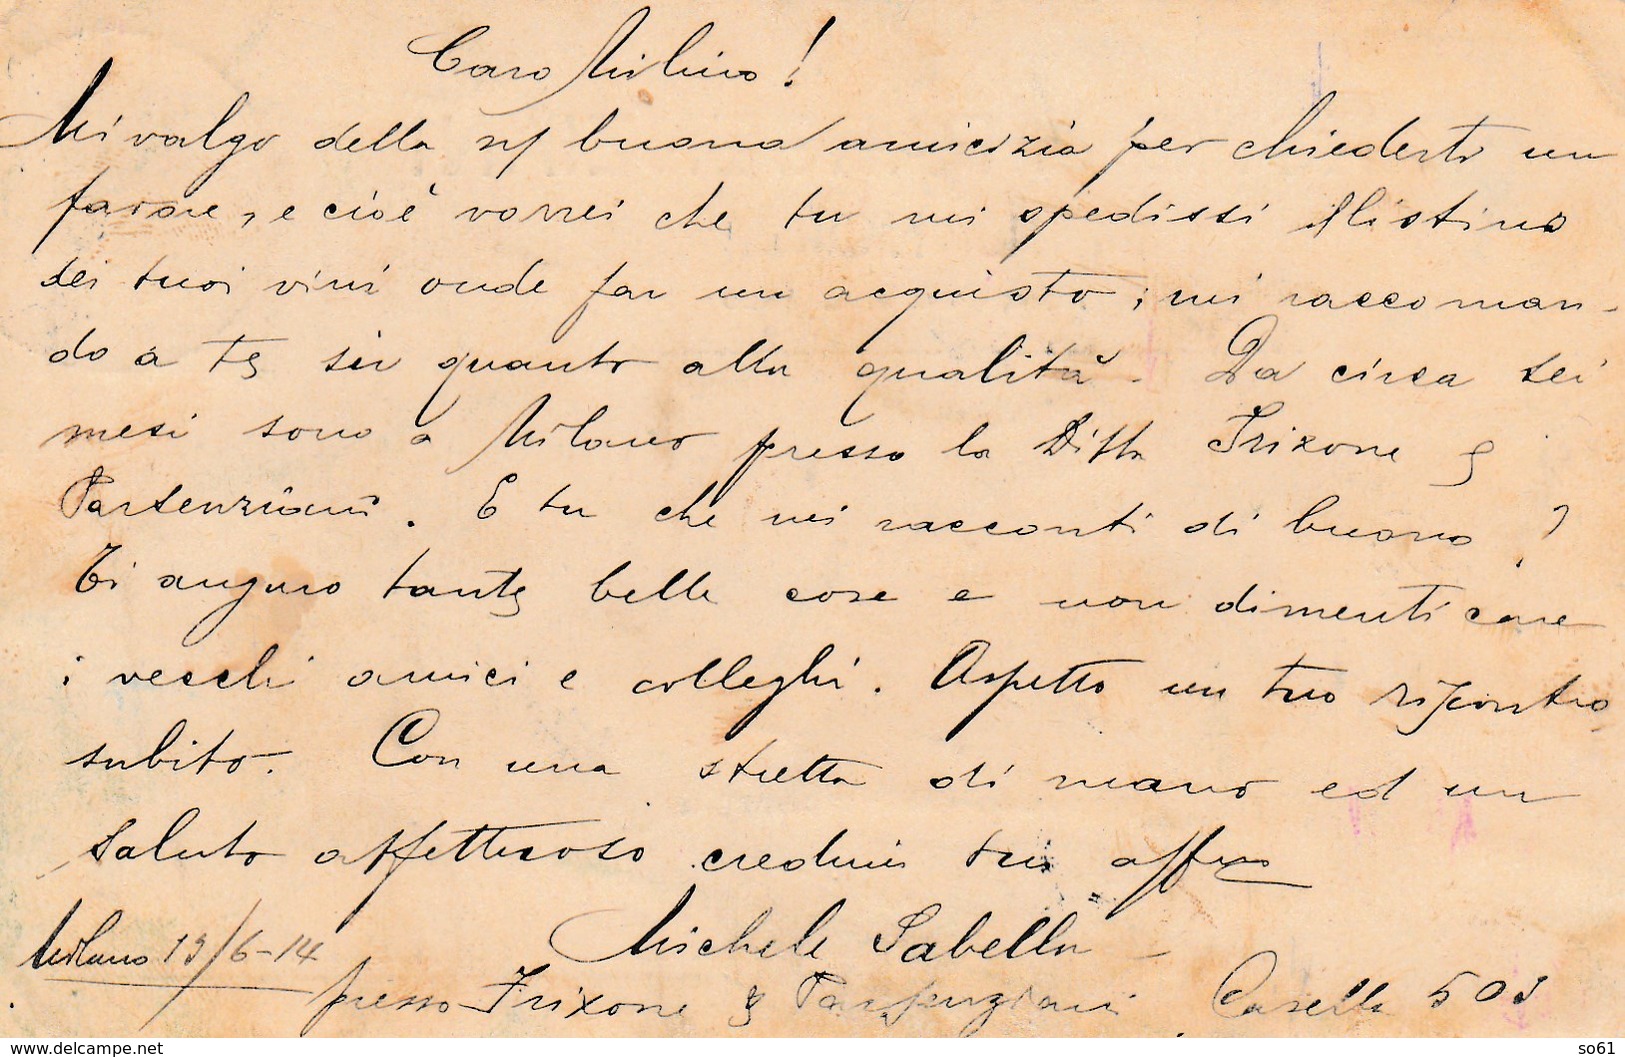 Caro
Mi valgo della buona amicizia per chiederti un
favore, e cioè vorrei che tu mi spedissi il listino
dei tuoi vini onde far un acquisto; mi raccoman-
do a te in quanto alla qualità. Da circa sei
mesi sono a Milano presso la Ditta Frixone &
Partenziani. E tu che mi racconti di buono?
Ti auguro tante belle cose e non dimenticare
i vecchi amici e colleghi. Aspetto un tuo riscontro
subito. Con una stretta di mano ed un
saluto affettuoso credimi tuo affmo
Michele Sabella
Milano 19/6-14
presso Frixone & Partenziani Casella 503
www.delcampe.net
so61